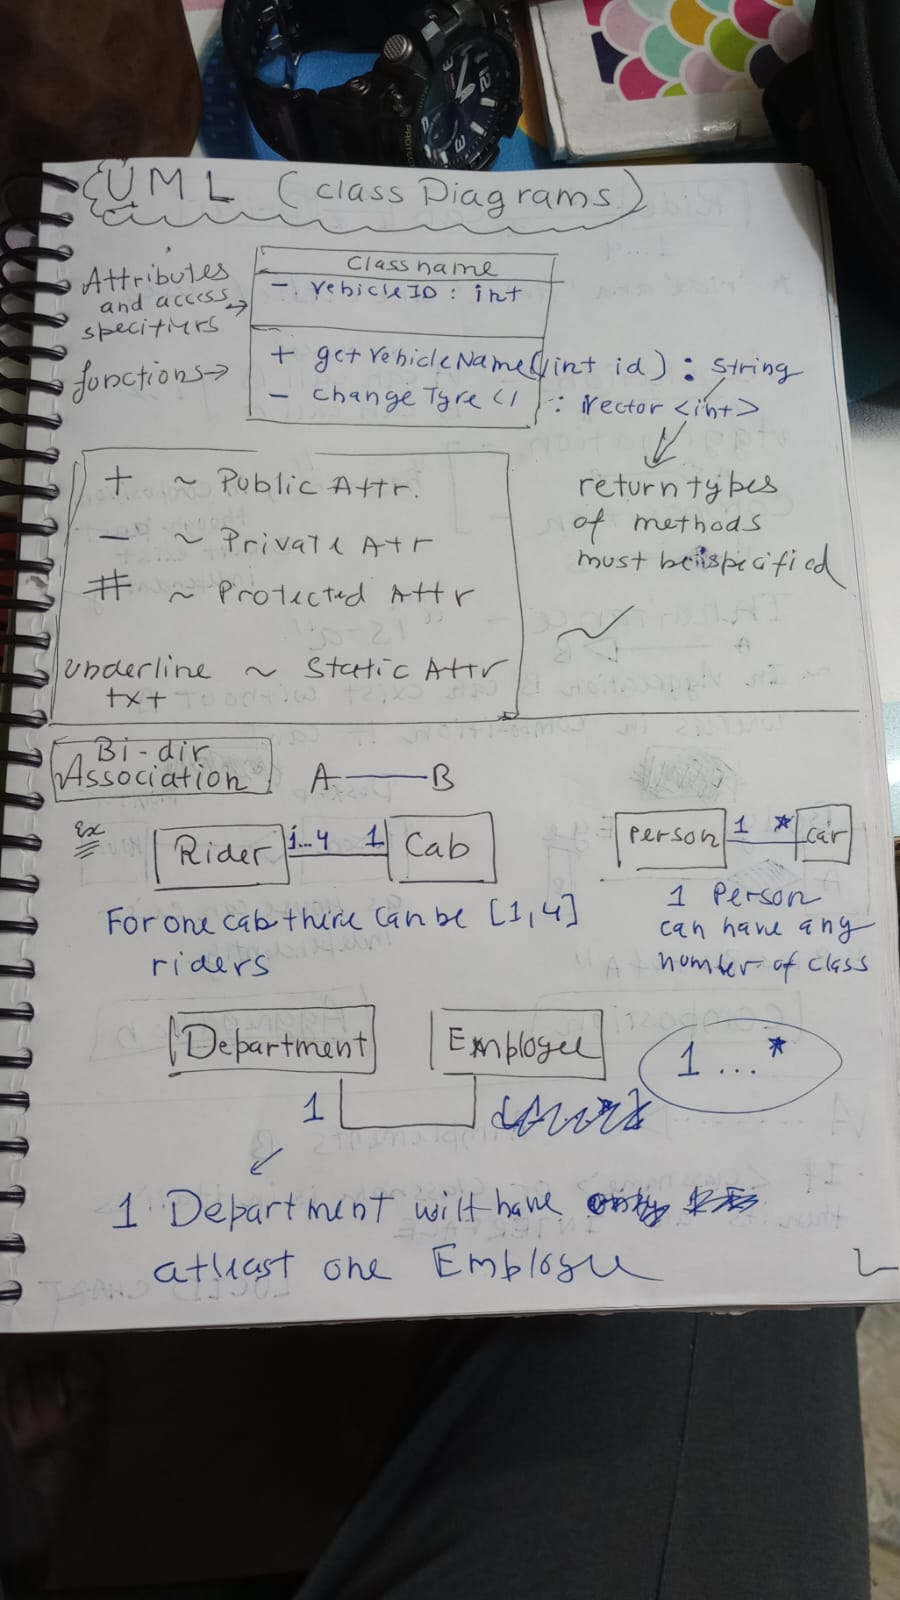 UML (class Diagrams)
Attributes
and access
specifiers
→
functions →
Classname
- vehicleID : int
+ getVehicleName(int id) : string
- ChangeTyre () : vector <int>
return types
of methods
must be specified
+ ~ Public Attr.
- ~ Private Atr
# ~ Protected Attr
underline ~ Static Attr
txt
Bi-dir
Association
A — B
Ex
Rider 1...4 1 Cab
For one cab there can be [1,4]
riders
Person 1 * Car
1 Person
can have any
number of class
Department Employee
1
1 ... *
1 Department will have
atleast one Employee